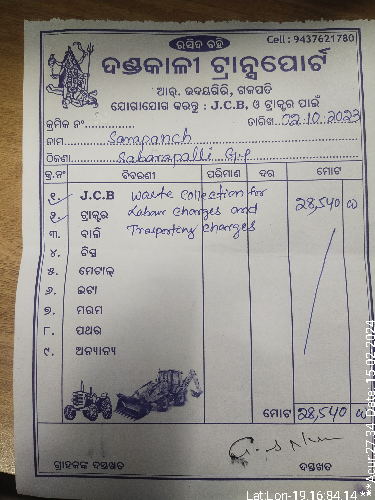 ରସିଦ ବହି
Cell : 9437621780
ଦଣ୍ଡକାଳୀ ଟ୍ରାନ୍ସପୋର୍ଟ
ଆର୍. ଉଦୟଗିରି, ଗଜପତି
ଯୋଗାଯୋଗ କରନ୍ତୁ : J.C.B, ଓ ଟ୍ରାକ୍ଟର ପାଇଁ
କ୍ରମିକ ନଂ............ ତାରିଖ 02.10.2023
ନାମ Sarapanch
ଠିକଣା Sabarapalli G.P
କ୍ର.ନଂ ବିବରଣୀ ପରିମାଣ ଦର ମୋଟ
୧. J.C.B Waste Collection for 28,540
୨. ଟ୍ରାକ୍ଟର Labour charges and
୩. ବାଲି Trasporting charges
୪. ଚିପ୍ସ
୫. ମେଟାଲ୍
୬. ଇଟା
୭. ମରମ
୮. ପଥର
୯. ଅନ୍ୟାନ୍ୟ
ମୋଟ 28,540
ଗ୍ରାହକଙ୍କ ଦସ୍ତଖତ ଦସ୍ତଖତ
Lat:Lon-19.16:84.14***Acur:27.34 Date:15-02-2024